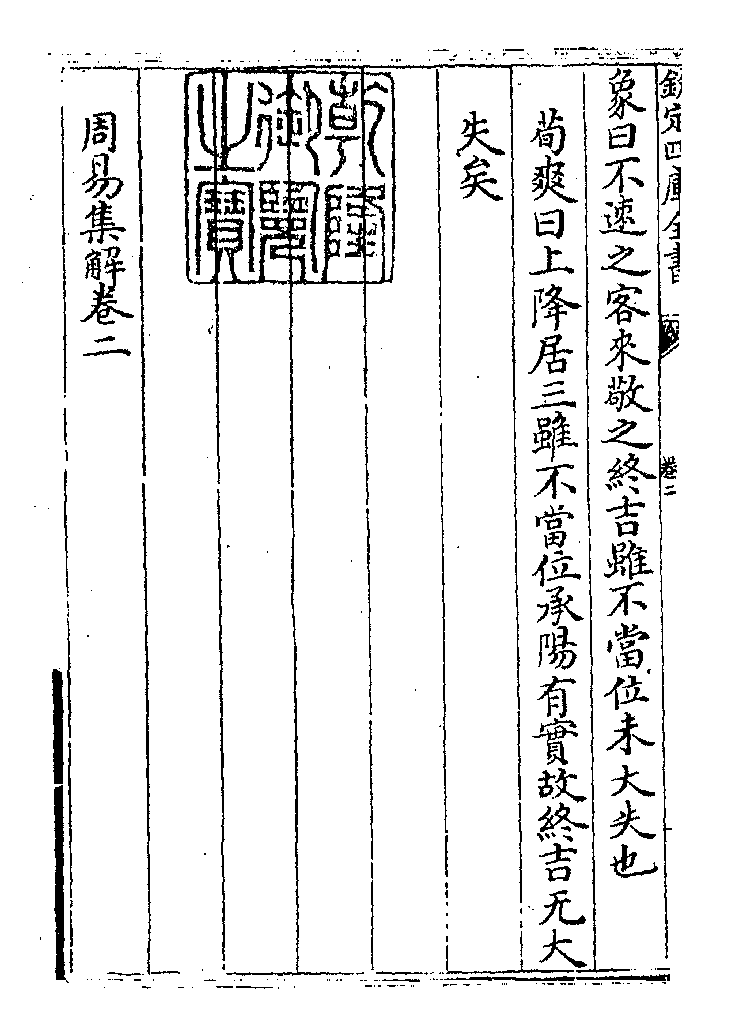 欽定四庫全書
卷二
象曰不速之客來敬之終吉雖不當位未大失也
荀爽曰上降居三雖不當位承陽有實故終吉无大
失矣
乾隆御覽之寶
周易集解卷二